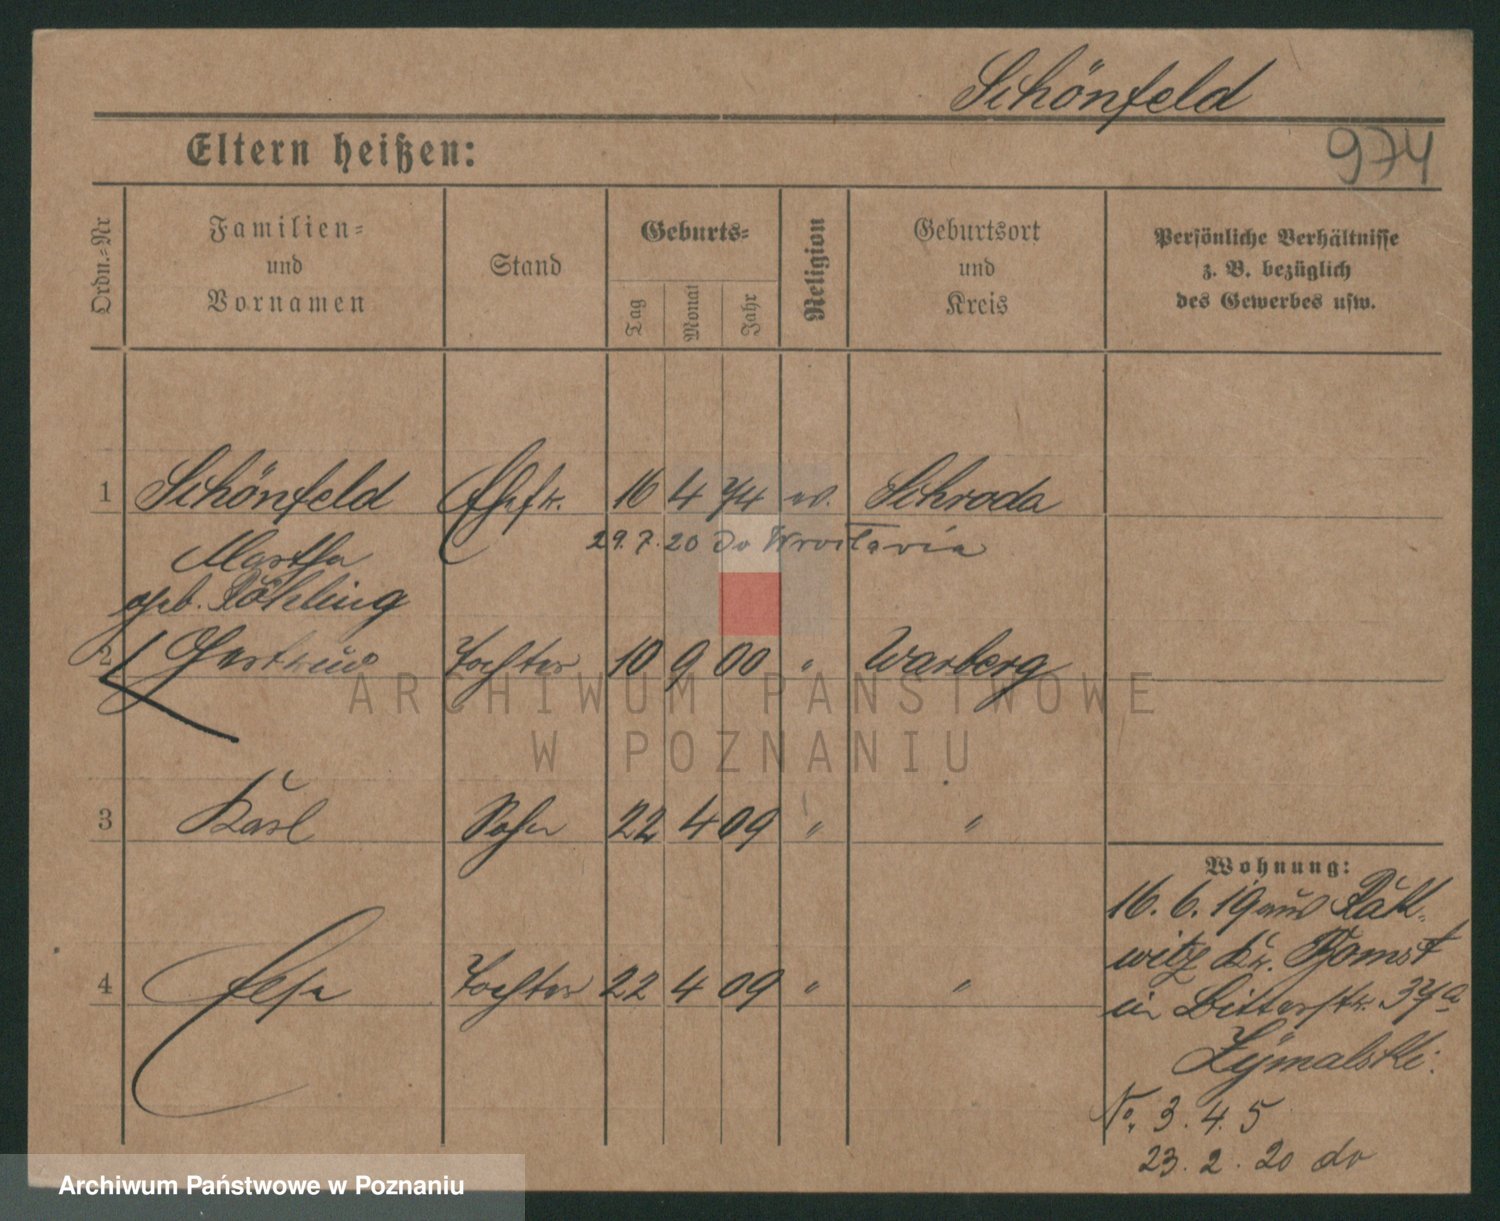 Schönfeld
974
Eltern heißen:
Ordn.=Nr
Familien=
und
Vornamen
Stand
Geburts=
Tag
Monat
Jahr
Religion
Geburtsort
und
Kreis
Persönliche Verhältnisse
z. B. bezüglich
des Gewerbes usw.
1 Schönfeld Ehefr. 16 4 74 ev. Schroda
Martha
29.7.20 do
geb.
2 Gertrud Tochter 10 9 00 " Warberg
3 Karl Sohn 22 4 09 " "
4 Else Tochter 22 4 09 " "
Wohnung:
16. 6. 19 aus
witz Kr. Bomst
in Bitterstr.
No. 3. 4. 5
23. 2. 20 do
ARCHIWUM PAŃSTWOWE
W POZNANIU
Archiwum Państwowe w Poznaniu